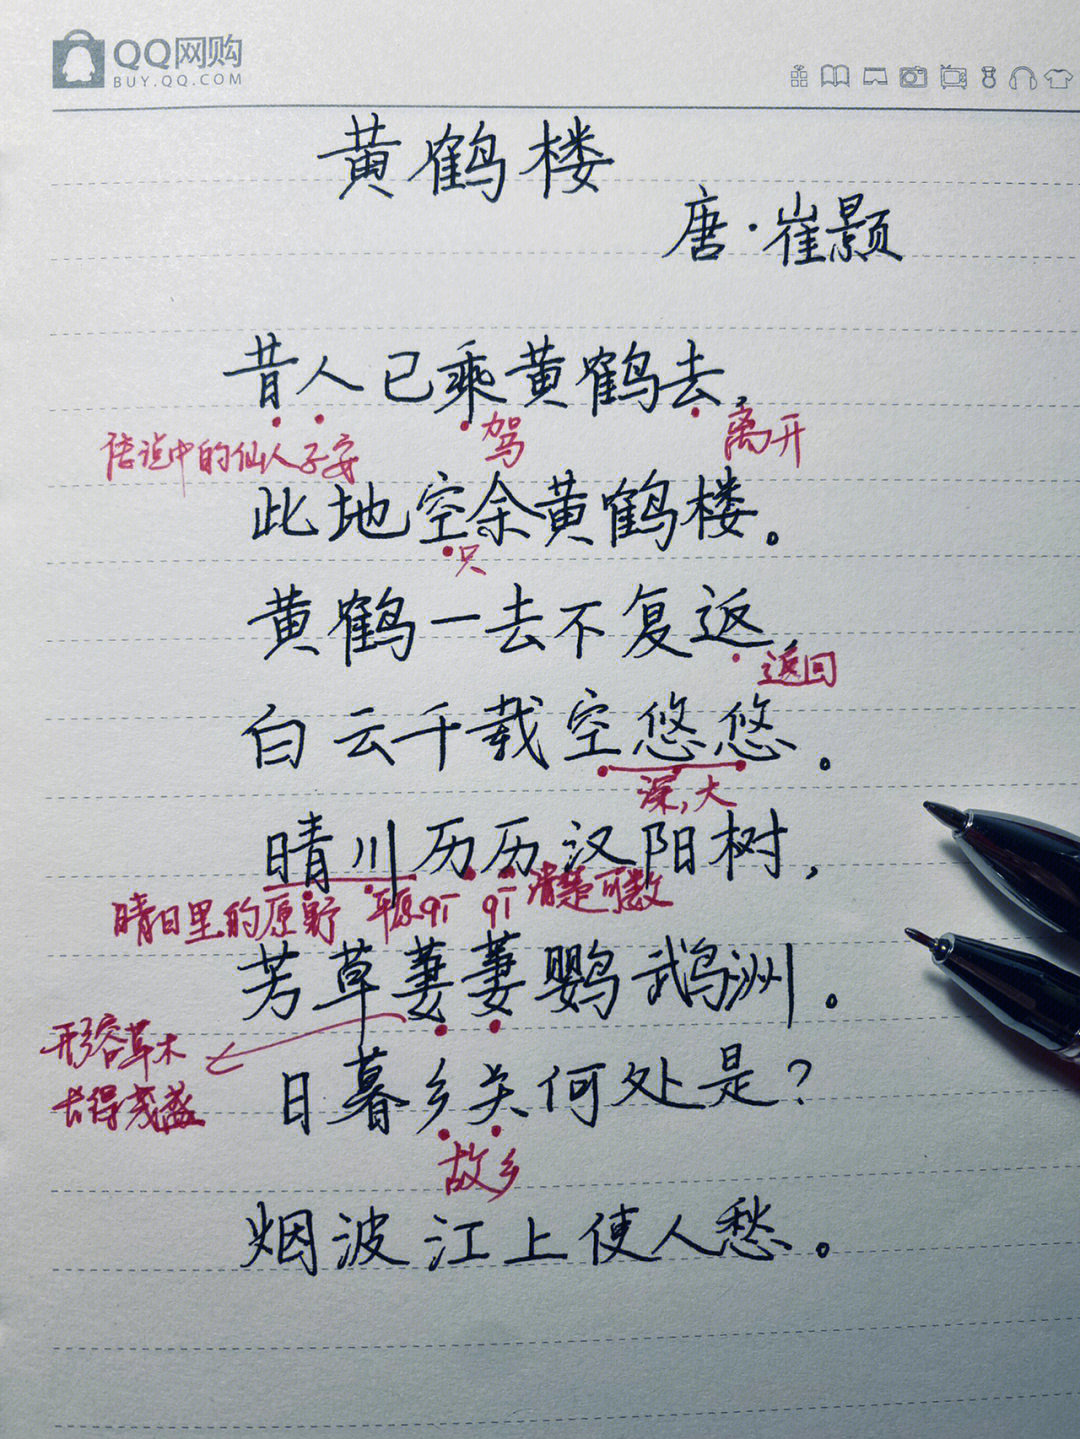 QQ网购
BUY.QQ.COM
黄鹤楼
唐·崔颢
昔人已乘黄鹤去,
传说中的仙人子安 驾 离开
此地空余黄鹤楼。
只
黄鹤一去不复返,
返回
白云千载空悠悠。
深,大
晴川历历汉阳树,
晴日里的原野 平原 清楚可数
芳草萋萋鹦鹉洲。
形容草木
长得茂盛
日暮乡关何处是?
故乡
烟波江上使人愁。